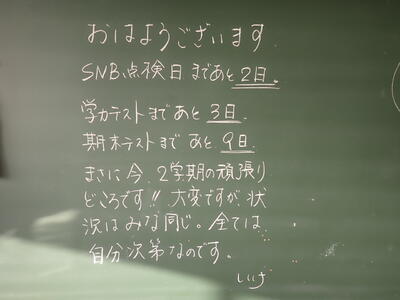 おはようございます
SNB点検日まであと2日。
学力テストまであと3日.
期末テストまであと9日.
まさに今、2学期の頑張り
どころです!! 大変ですが状
況はみな同じ。全ては
自分次第なのです。